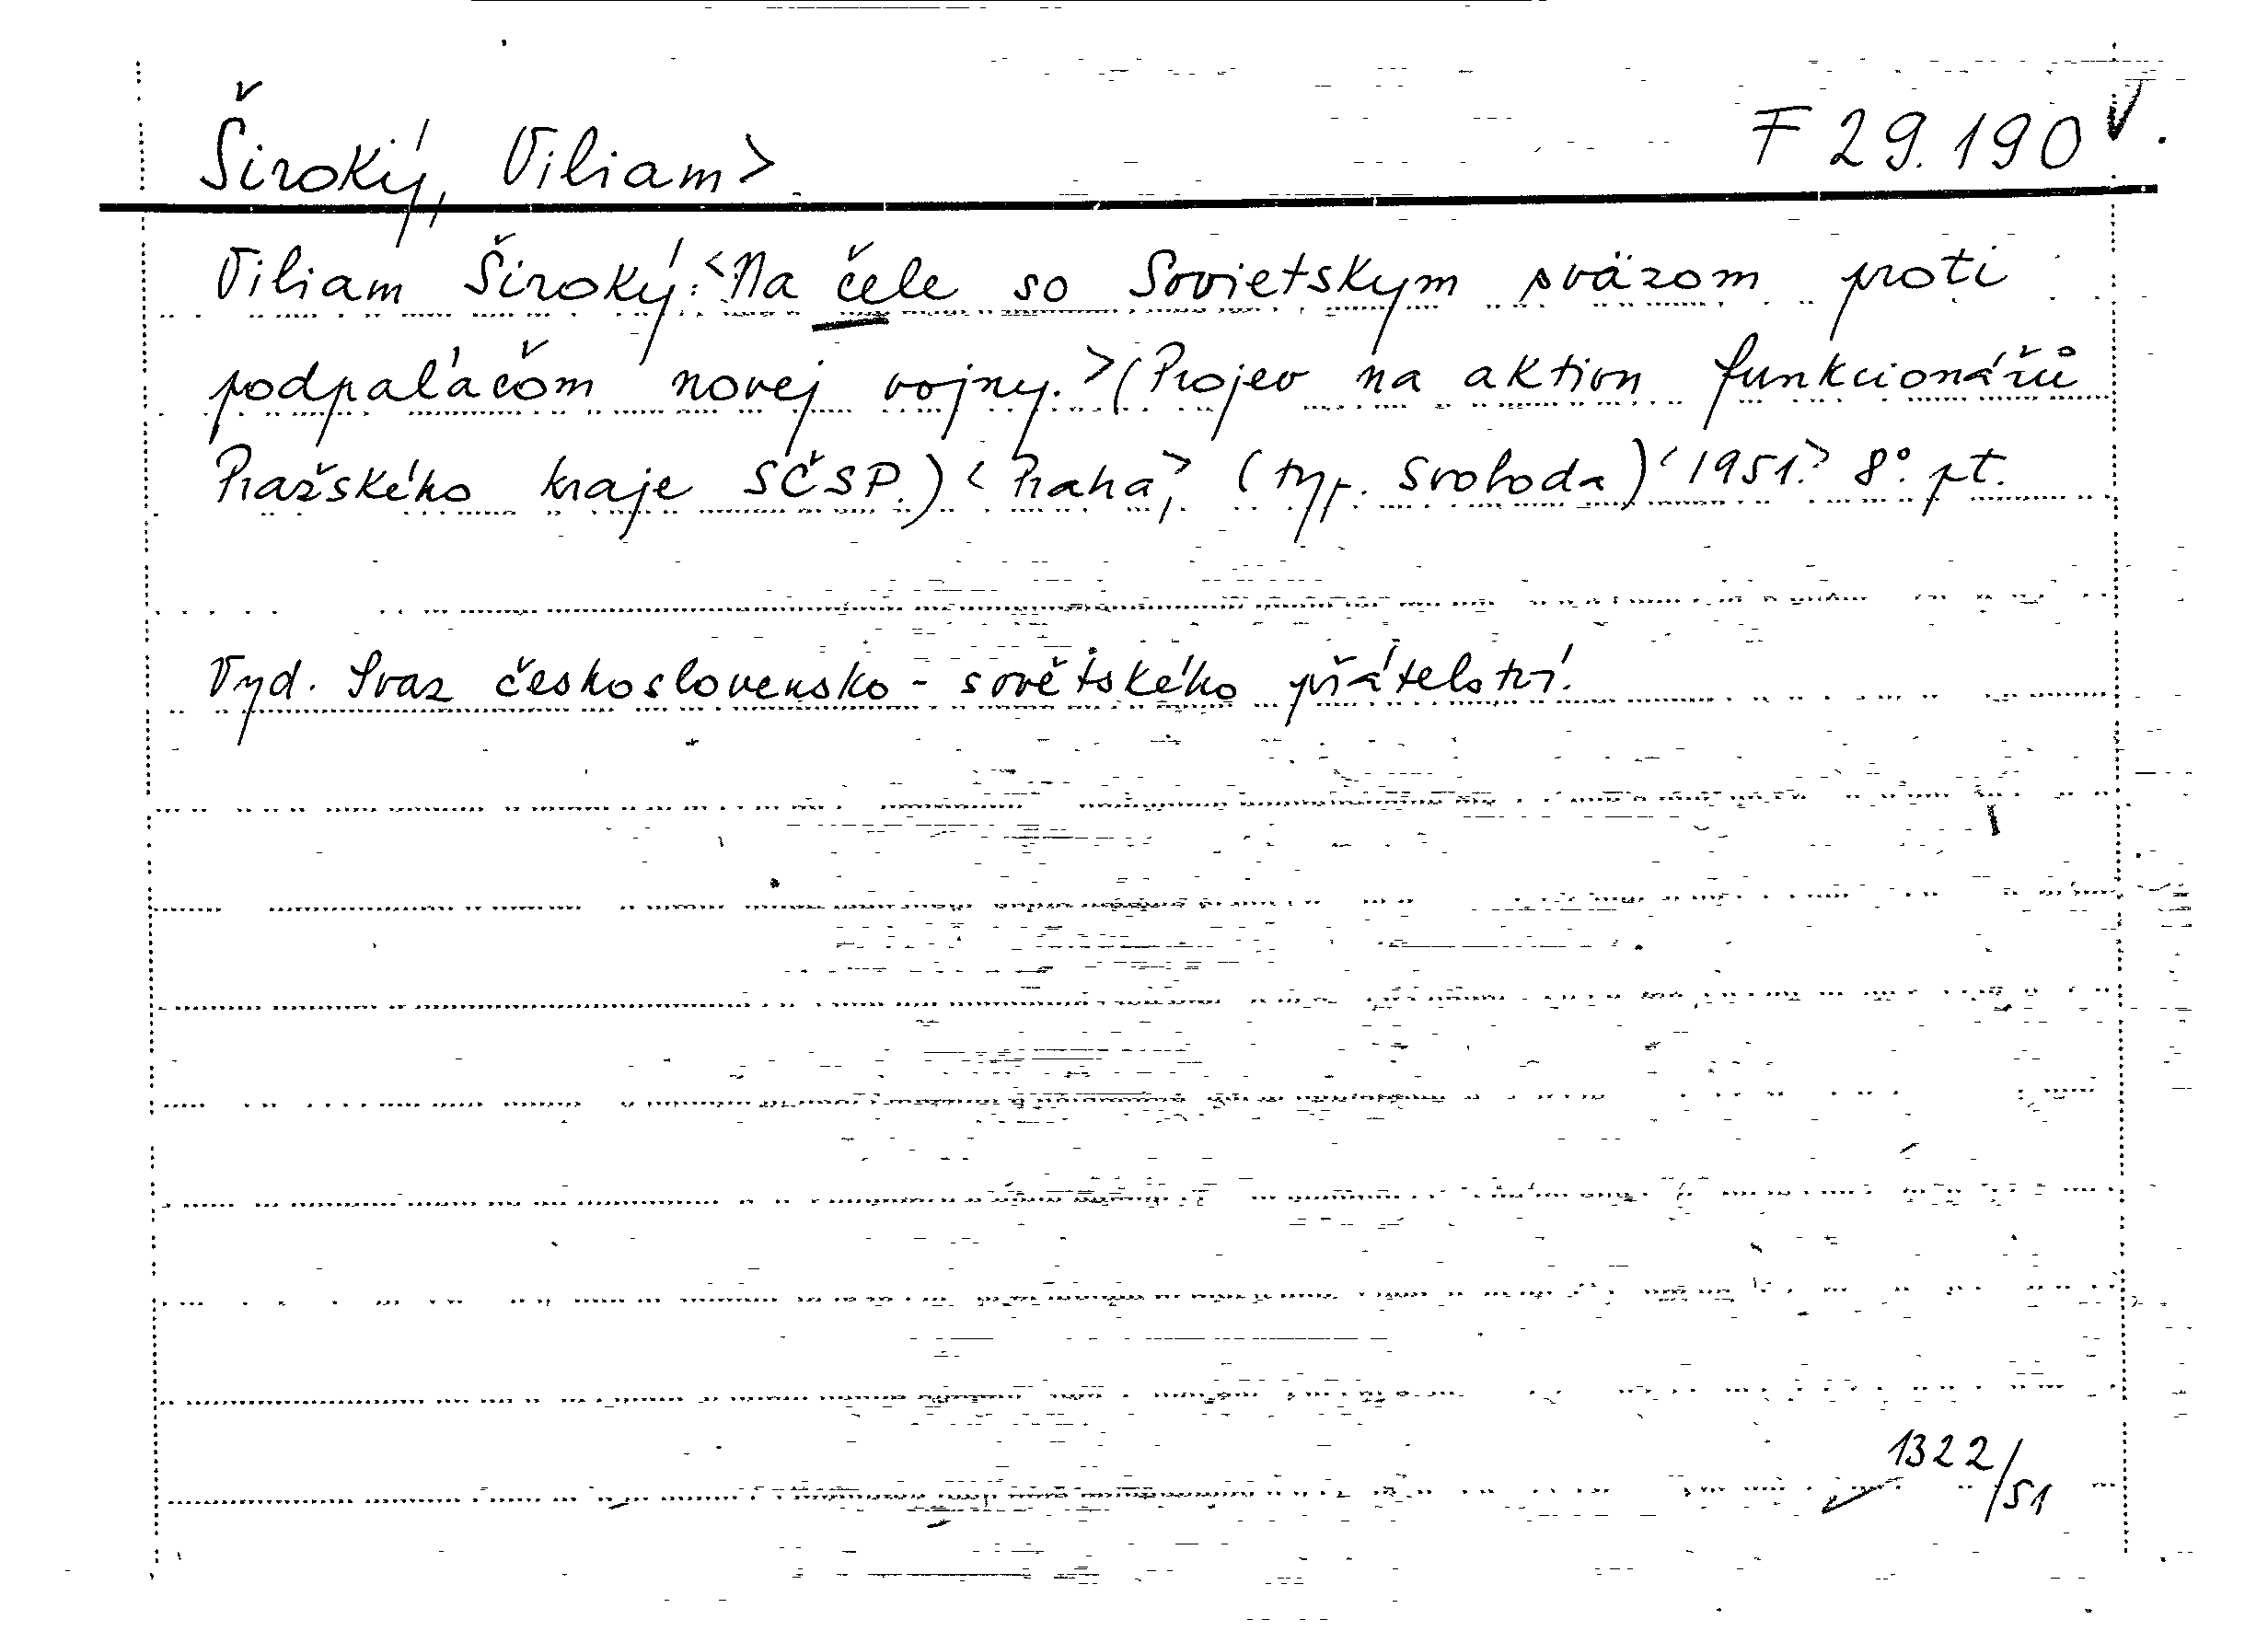 Široký, Viliam> F 29.190 V.
Viliam Široký: <Na čele so Sovietskym sväzom proti
podpaľáčom novej vojny.> (Projev na aktivu funkcionářů
Pražského kraje SČSP.) <Praha,> (typ. Svoboda) <1951.> 8° pt.
Vyd. Svaz československo-sovětského přátelství.
1322/51